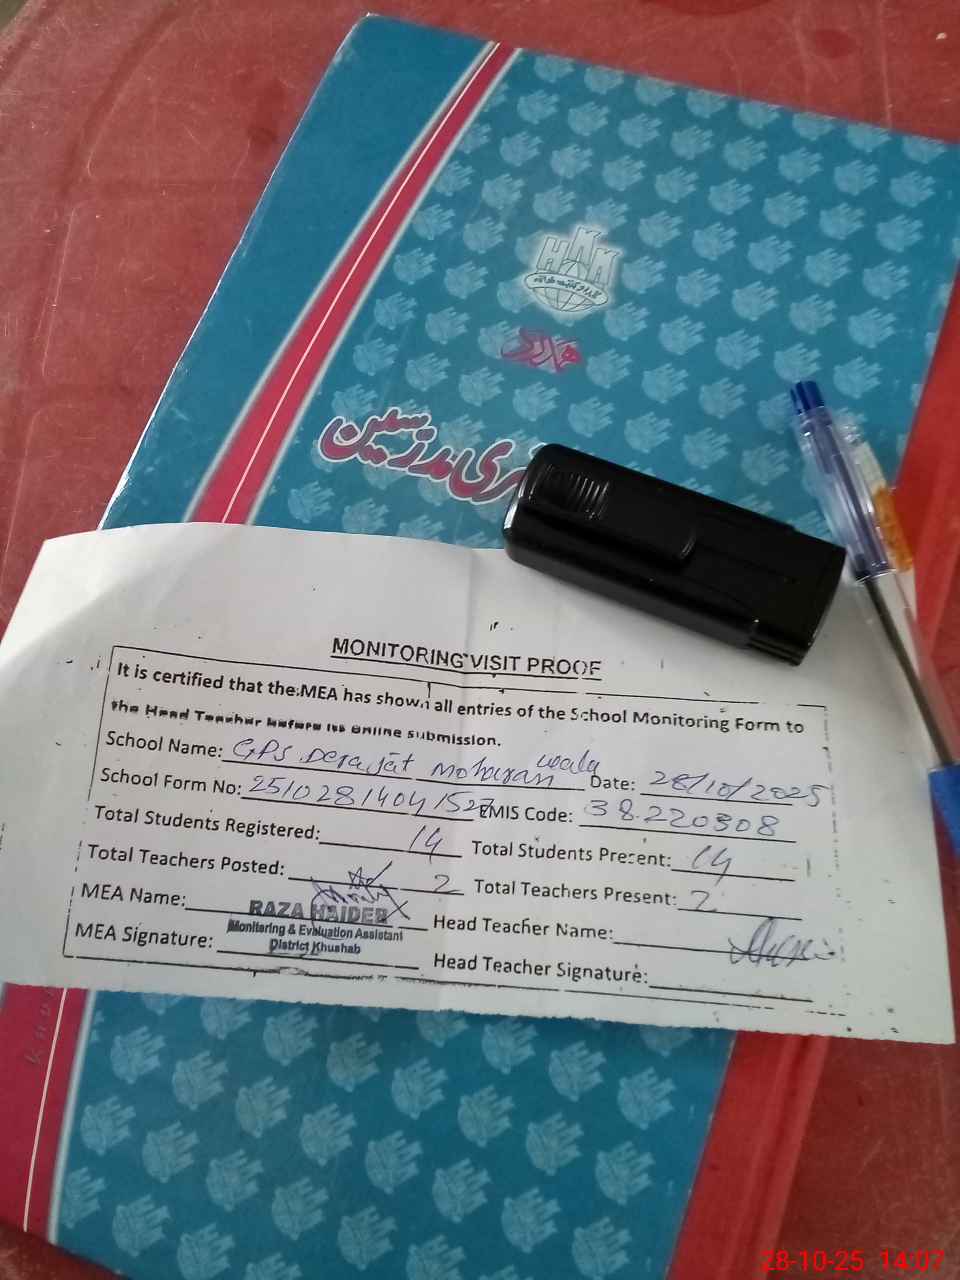 ہمدرد
حاضری مدرسین
MONITORING VISIT PROOF
It is certified that the MEA has shown all entries of the School Monitoring Form to
the Head Teacher before its online submission.
School Name: GPS Derajat Moharan wala Date: 28/10/2025
School Form No: 25102814041527 EMIS Code: 38220308
Total Students Registered: 14 Total Students Present: 14
Total Teachers Posted: 2 Total Teachers Present: 2
MEA Name: RAZA HAIDER Head Teacher Name:
Monitoring & Evaluation Assistant
District Khushab
MEA Signature: Head Teacher Signature:
28-10-25 14:07